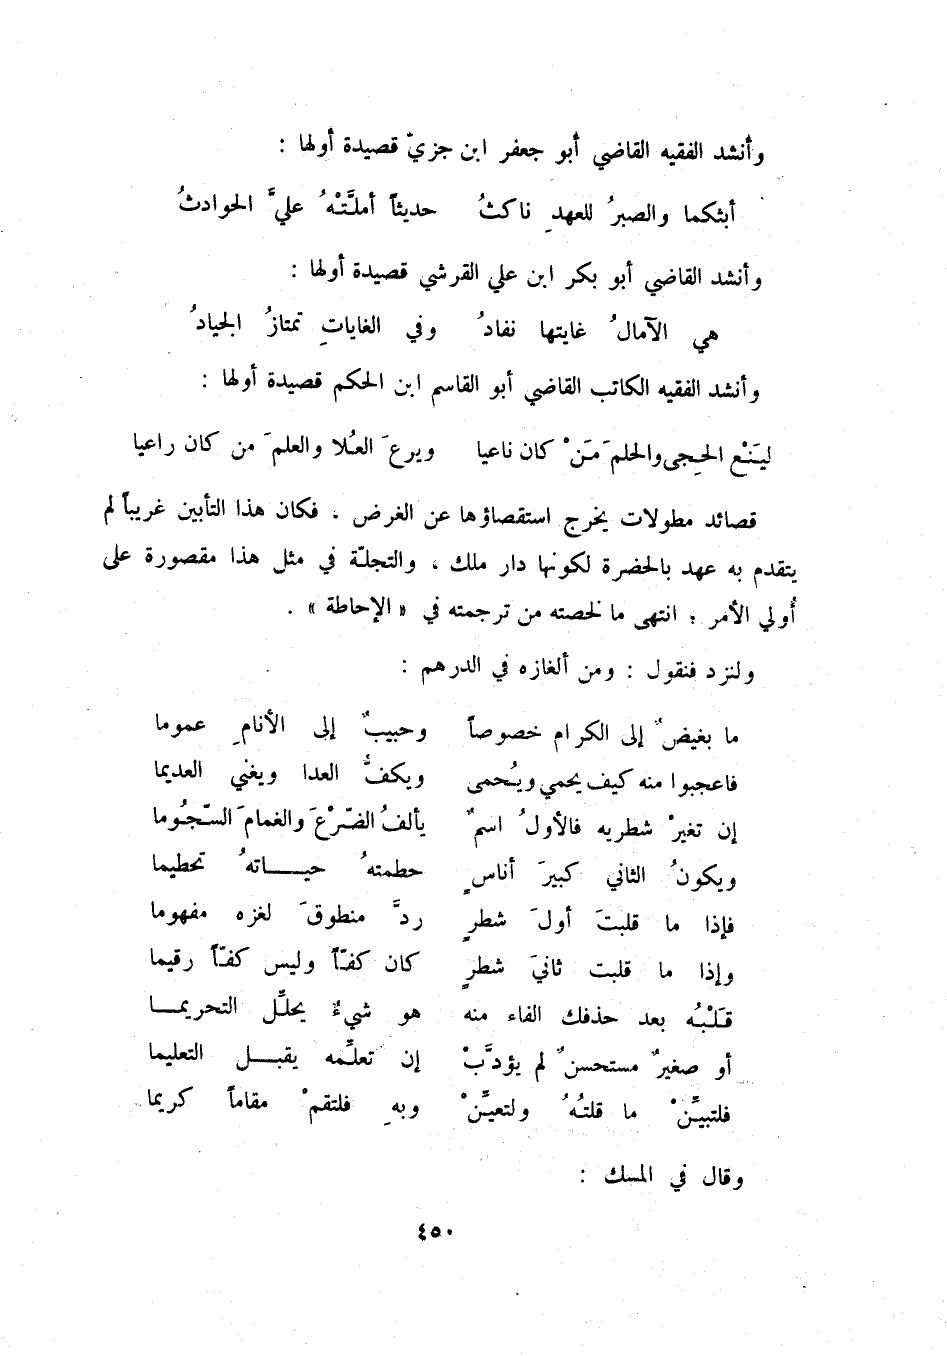 وأنشد الفقيه القاضي أبو جعفر ابن جزيّ قصيدة أولها :
أبثكما والصبرُ للعهدِ ناكثُ حديثاً أملَّتْهُ عليَّ الحوادثُ
وأنشد القاضي أبو بكر ابن علي القرشي قصيدة أولها :
هي الآمالُ غايتها نفادُ وفي الغاياتِ تمتازُ الجيادُ
وأنشد الفقيه الكاتب القاضي أبو القاسم ابن الحكم قصيدة أولها :
ليَنْعِ الحِجى والحلمَ مَنْ كان ناعيا ويرعَ العُلا والعلمَ من كان راعيا
قصائد مطولات يخرج استقصاؤها عن الغرض . فكان هذا التأبين غريباً لم
يتقدم به عهد بالحضرة لكونها دار ملك ، والتجلّة في مثل هذا مقصورة على
أُولي الأمر ؛ انتهى ما لخصته من ترجمته في « الإحاطة » .
ولنزد فنقول : ومن ألغازه في الدرهم :
ما بغيضٌ إلى الكرام خصوصاً وحبيبٌ إلى الأنامِ عموما
فاعجبوا منه كيف يحمي ويُحمى ويكفُّ العدا ويغني العديما
إن تغيرْ شطريه فالأولُ اسمٌ يألفُ الضّرْعَ والغمامَ السّجُوما
ويكونُ الثاني كبيرَ أناسٍ حطمتهُ حيـــاتهُ تحطيما
فإذا ما قلبتَ أولَ شطرٍ ردَّ منطوقَ لغزه مفهوما
وإذا ما قلبت ثانيَ شطرٍ كان كفّاً وليس كفّاً رقيما
قَلْبُه بعد حذفك الفاء منه هو شيءٌ يحلّل التحريمـــا
أو صغيرٌ مستحسنٌ لم يؤدَّبْ إن تعلِّمه يقبـــل التعليما
فلتبيّنْ ما قلتُهُ ولتعيّنْ وبهِ فلتقمْ مقاماً كريما
وقال في المسك :
٤٥٠